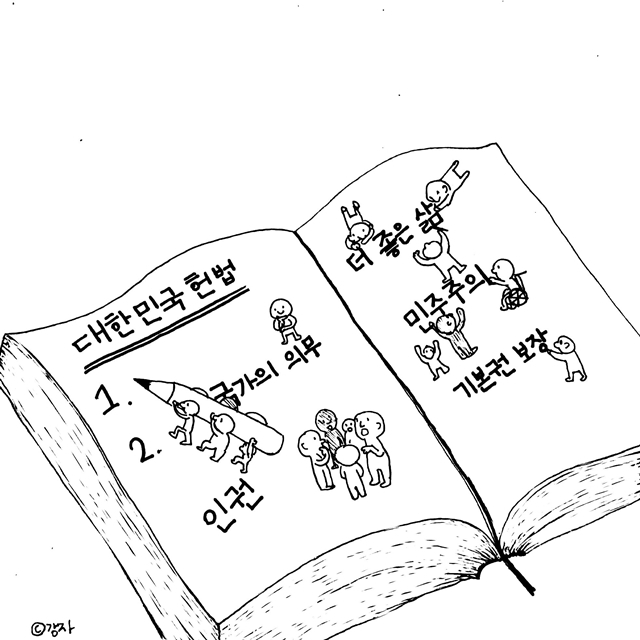 대한민국 헌법
1.
국가의 의무
2.
인권
더 좋은 삶
민주주의
기본권 보장
©감자